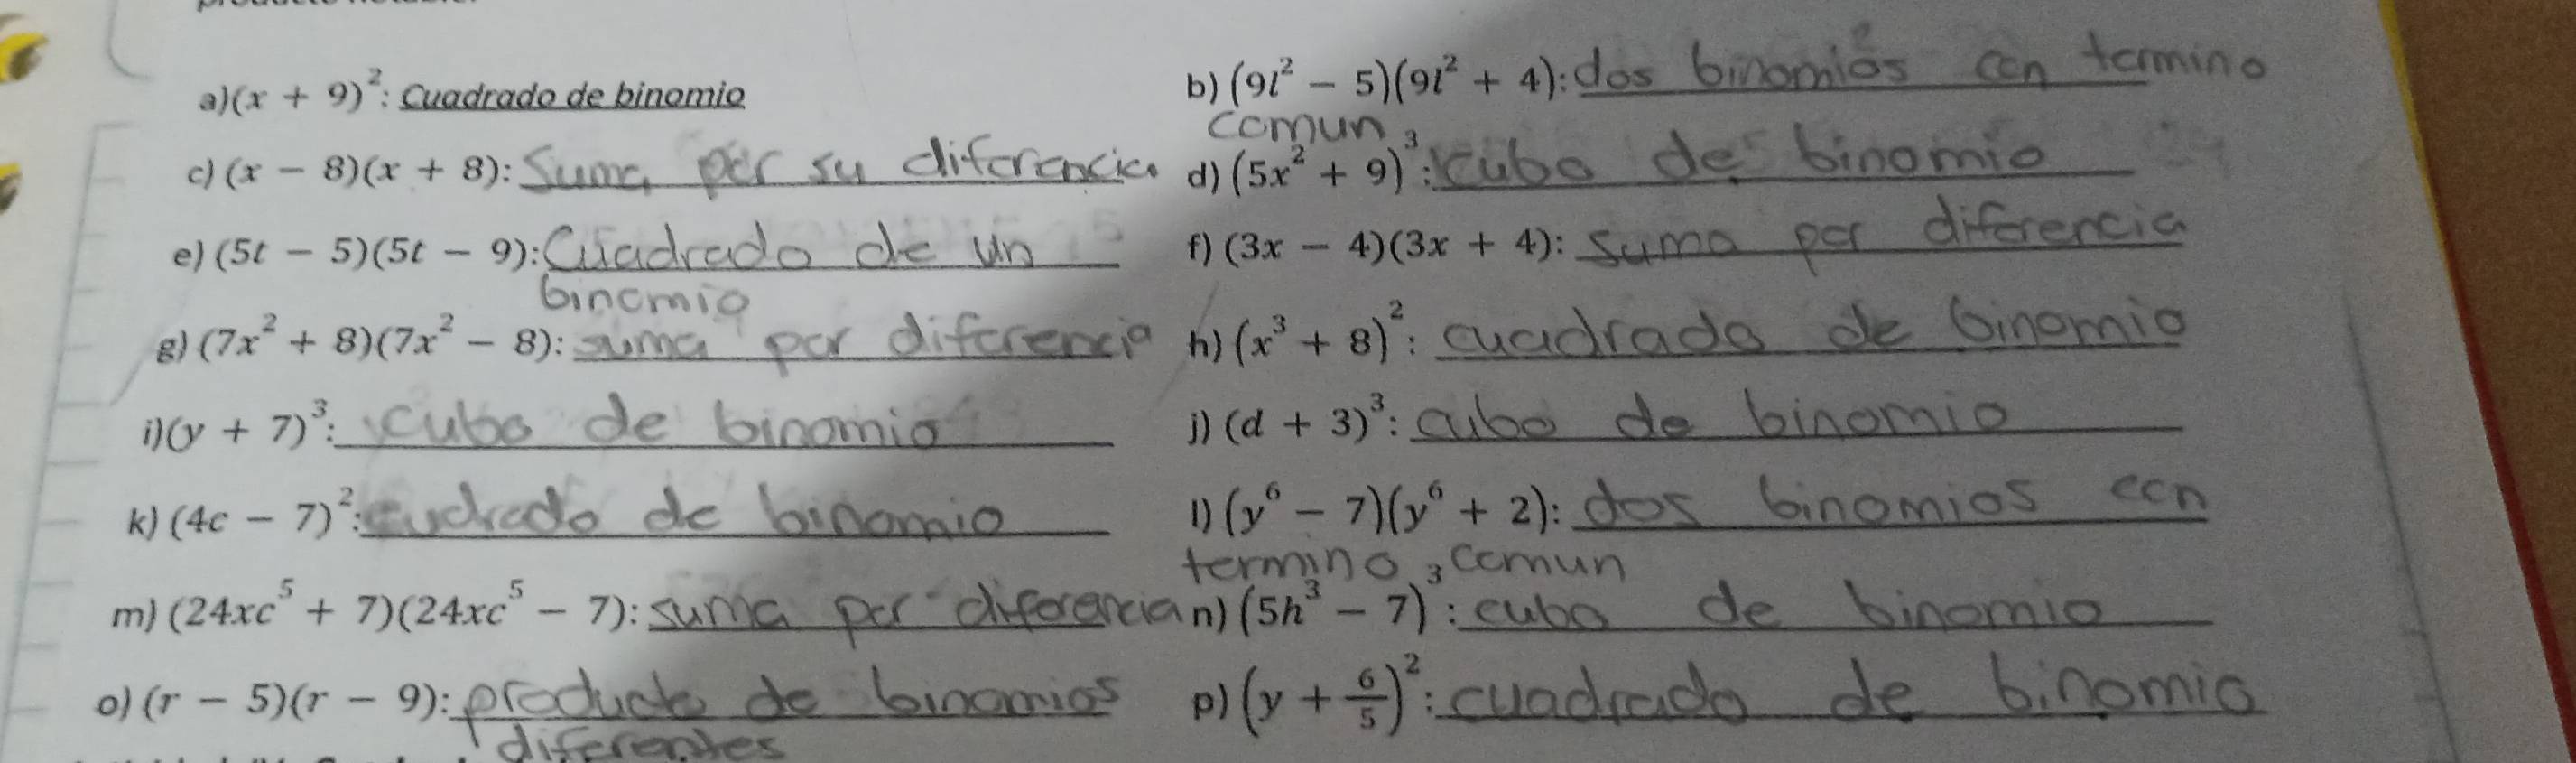 a)(x + 9)²: Cuadrado de binomio
b) (9l² − 5)(9l² + 4): dos binomios con termino
comun
c) (x − 8)(x + 8): Suma por su diferencia
d) (5x² + 9)³: cubo de binomio
e) (5t − 5)(5t − 9): Cuadrado de un
binomio
f) (3x − 4)(3x + 4): suma por diferencia
g) (7x² + 8)(7x² − 8): suma por diferencia
h) (x³ + 8)²: cuadrado de binomio
i)(y + 7)³: cubo de binomio
j) (d + 3)³: cubo de binomio
k) (4c − 7)²: cudrado de binomio
l) (y⁶ − 7)(y⁶ + 2): dos binomios con
termino comun
m) (24xc⁵ + 7)(24xc⁵ − 7): suma por diferencia
n) (5h³ − 7)³: cubo de binomio
o) (r − 5)(r − 9): producto de binomios
diferentes
p) (y + 6/5)²: cuadrado de binomio